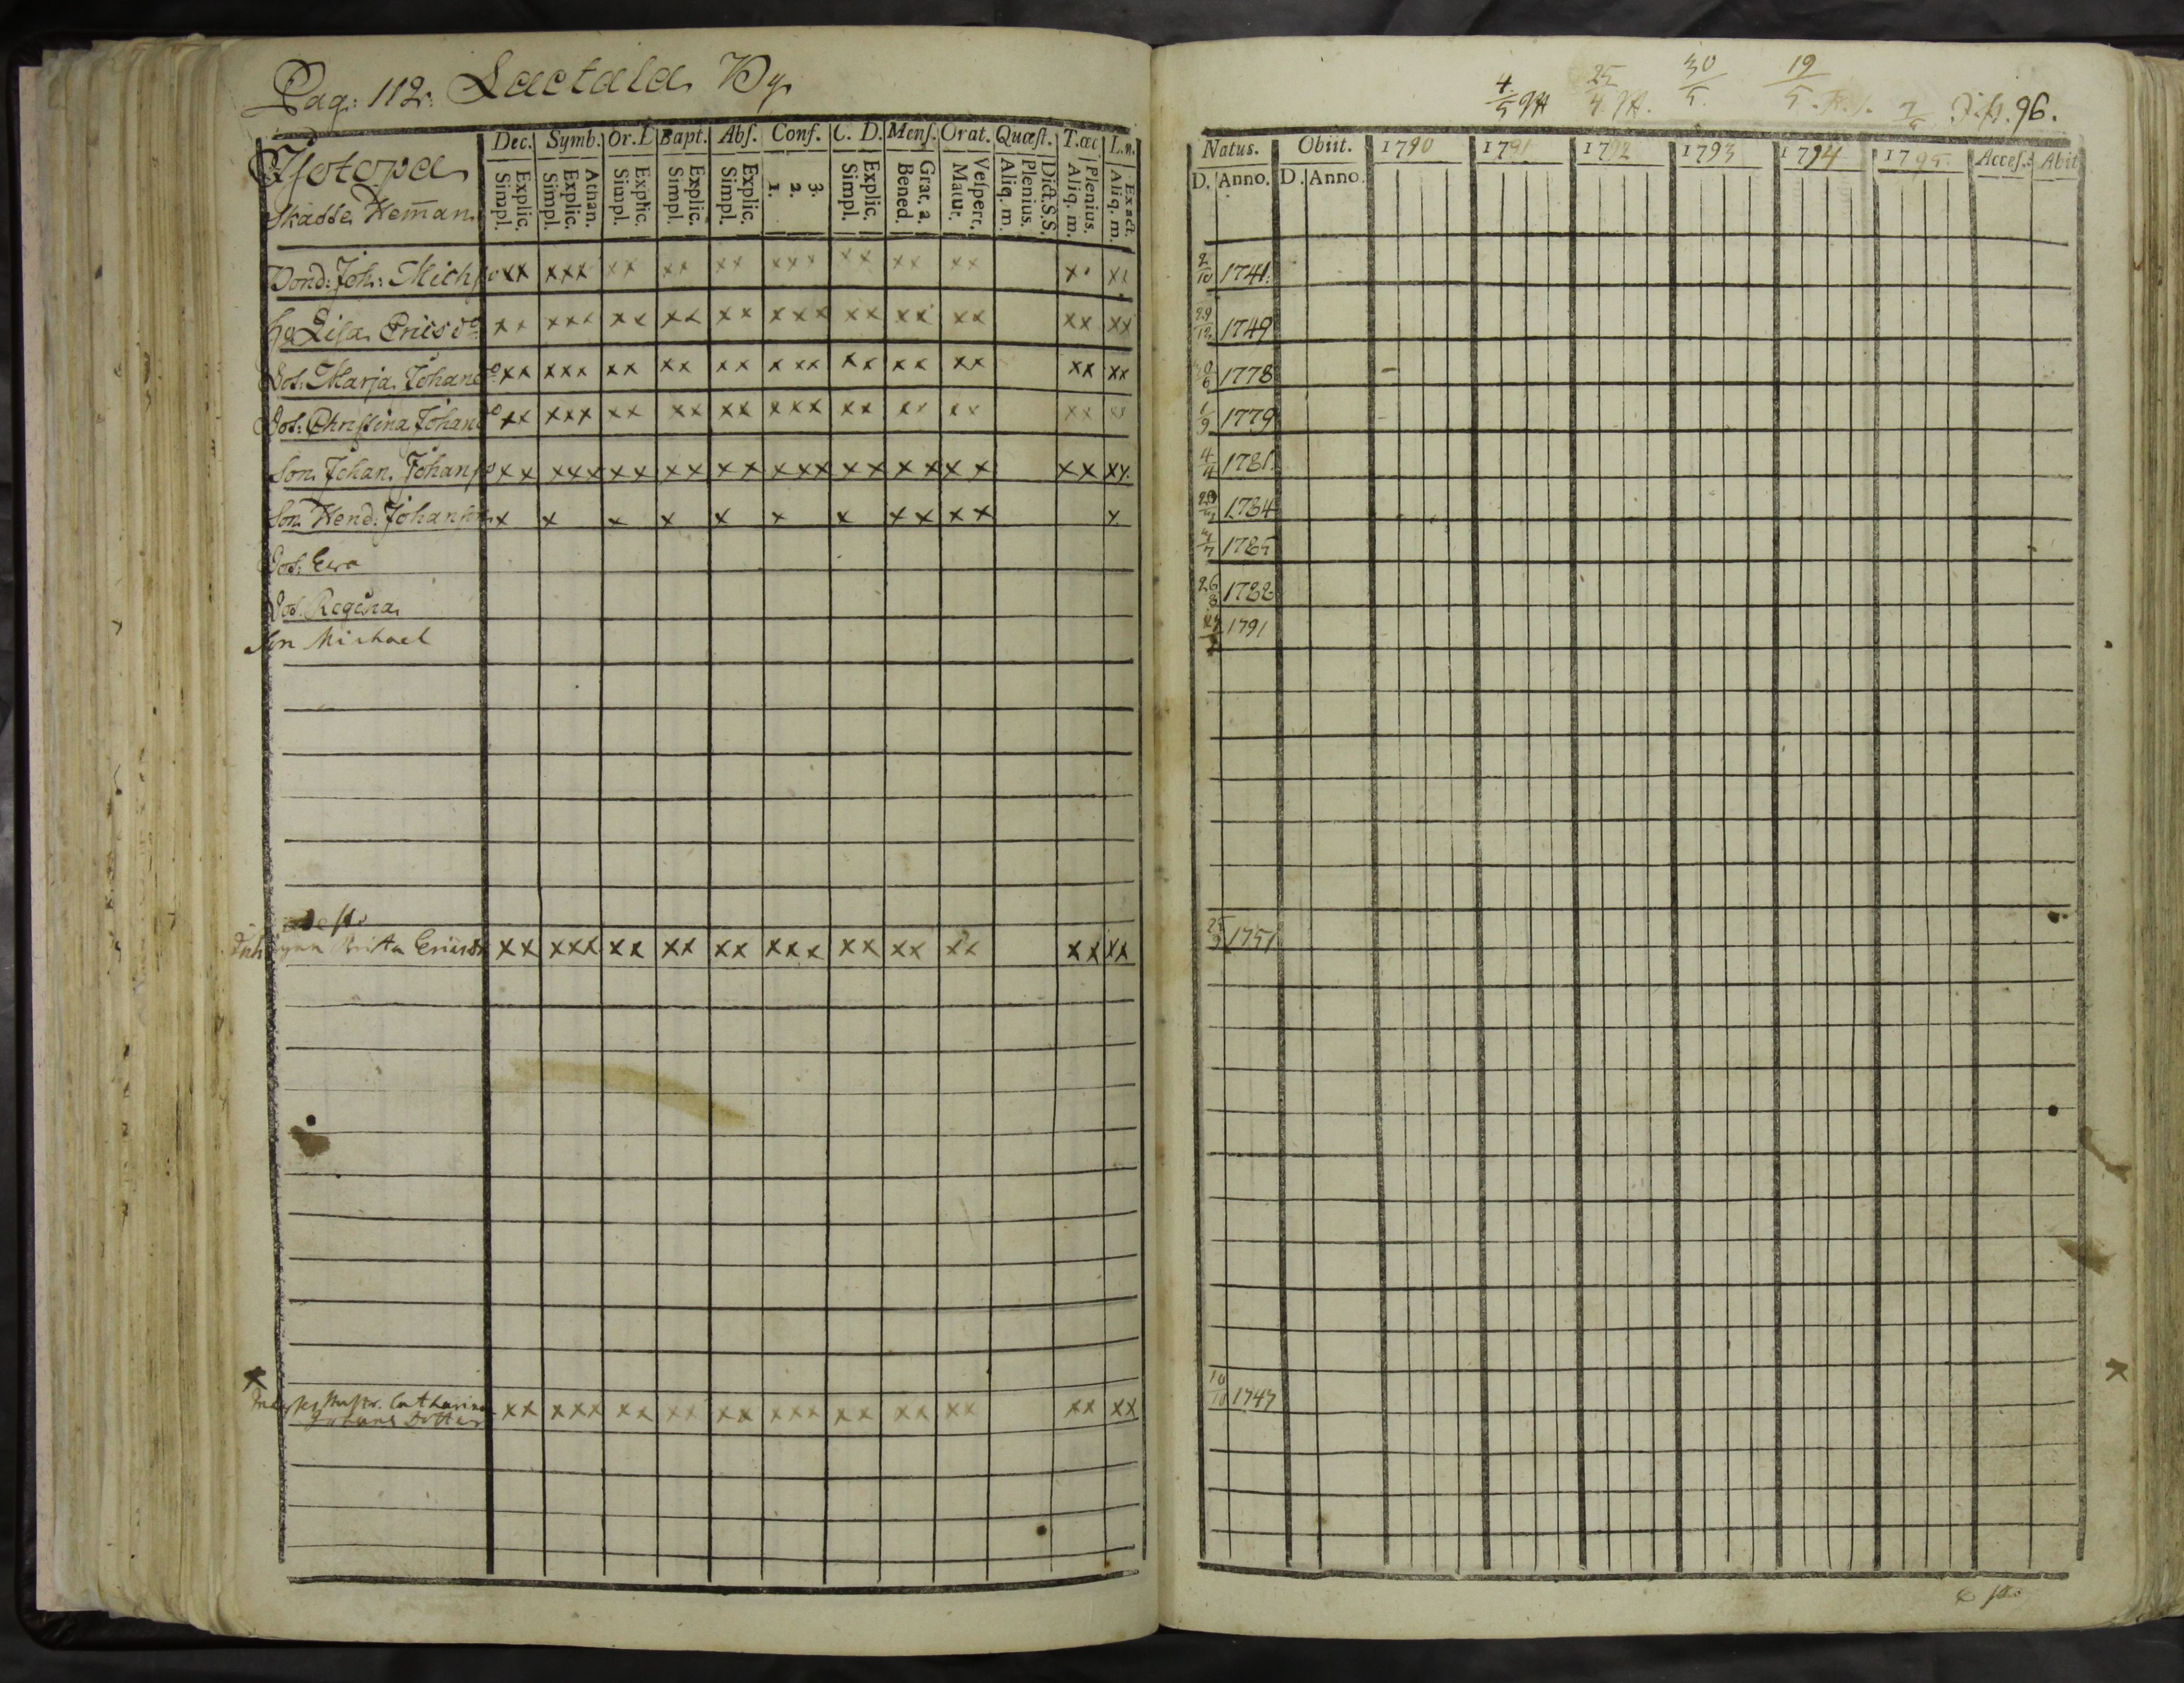 Pag: 112. Laetala By
Isotopa
Skatte Hem̄an
Dec. Symb. Or.L Bapt. Abſ. Conf. C. D. Menſ. Orat. Quæſt. T.œc L.n.
Explic. Simpl. Athan. Explic. Simpl. Explic. Simpl. Explic. Simpl. Explic. Simpl. 3. 2. 1. Explic. Simpl. Grat. a. Bened. Veſpert. Matut. Dict.S.S. Plenius. Aliq. m. Plenius. Aliq. m. Exact. Aliq. m.
Bond: Joh: Michſo xx xxx xx xx xx xxx xx xx xx xx xx
h: Lisa Ericsd: xx xxx xx xx xx xxx xx xx xx xx xx
Dot: Marja Johand: xx xxx xx xx xx xxx xx xx xx xx xx
Dot: Christina Johand: xx xxx xx xx xx xxx xx xx xx xx xx
Son Johan Johanſo xx xxx xx xx xx xxx xx xx xx xx xx
Son Hend: Johanſon x x x x x x x xx xx x
Dot: Ewa
Dot: Regina
Son Michael
Britta Ericsd: xx xxx xx xx xx xxx xx xx xx xx xx
Catharina
Johans Dotter xx xxx xx xx xx xxx xx xx xx xx xx
4/5 25/4 30/5 19/5 96.
Natus. Obiit. 1790 1791 1792 1793 1794 1795 Acceſ. Abit
D. Anno. D. Anno.
2/10 1741.
29/12 1749
1778
1/9 1779
4/4 1781.
1784
1785
26/8 1788
1791
1751
10/10 1747